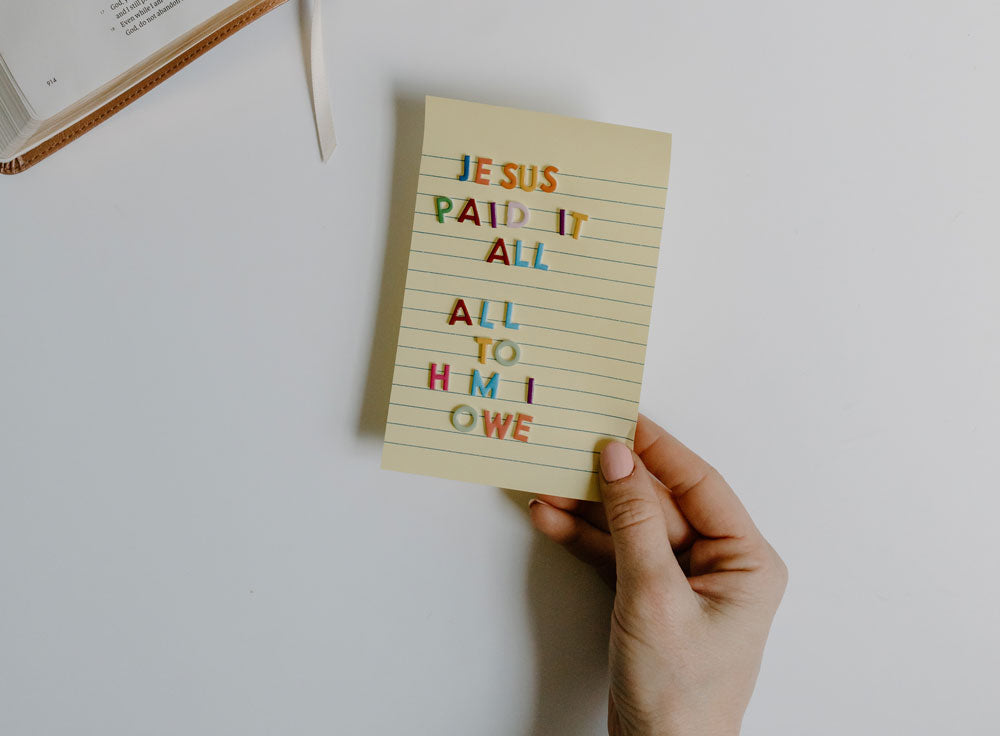 17 God,
and I still p
18 Even while I am
God, do not abandon
914
JESUS
PAID IT
ALL
ALL
TO
H M I
OWE